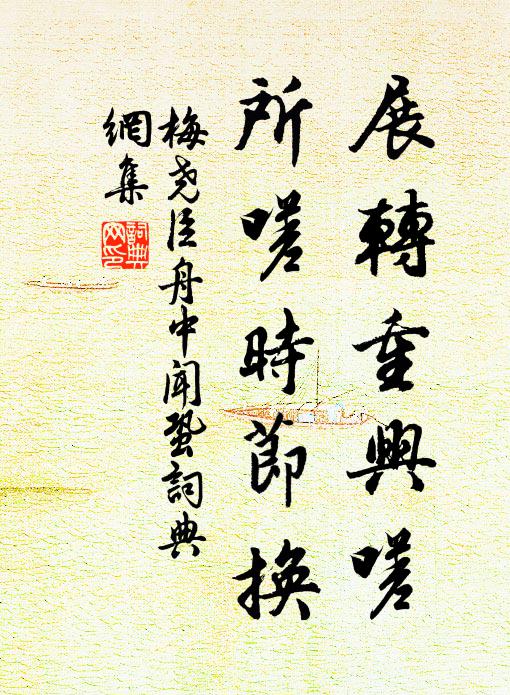 展轉重興嗟
所嗟時節換
梅堯臣舟中聞蛩詞典
網集
詞典網印